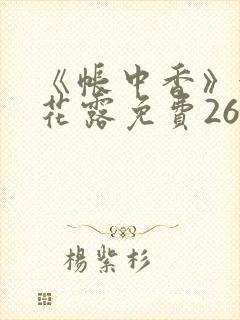 《帳中香》
花露免費26
楊紫杉